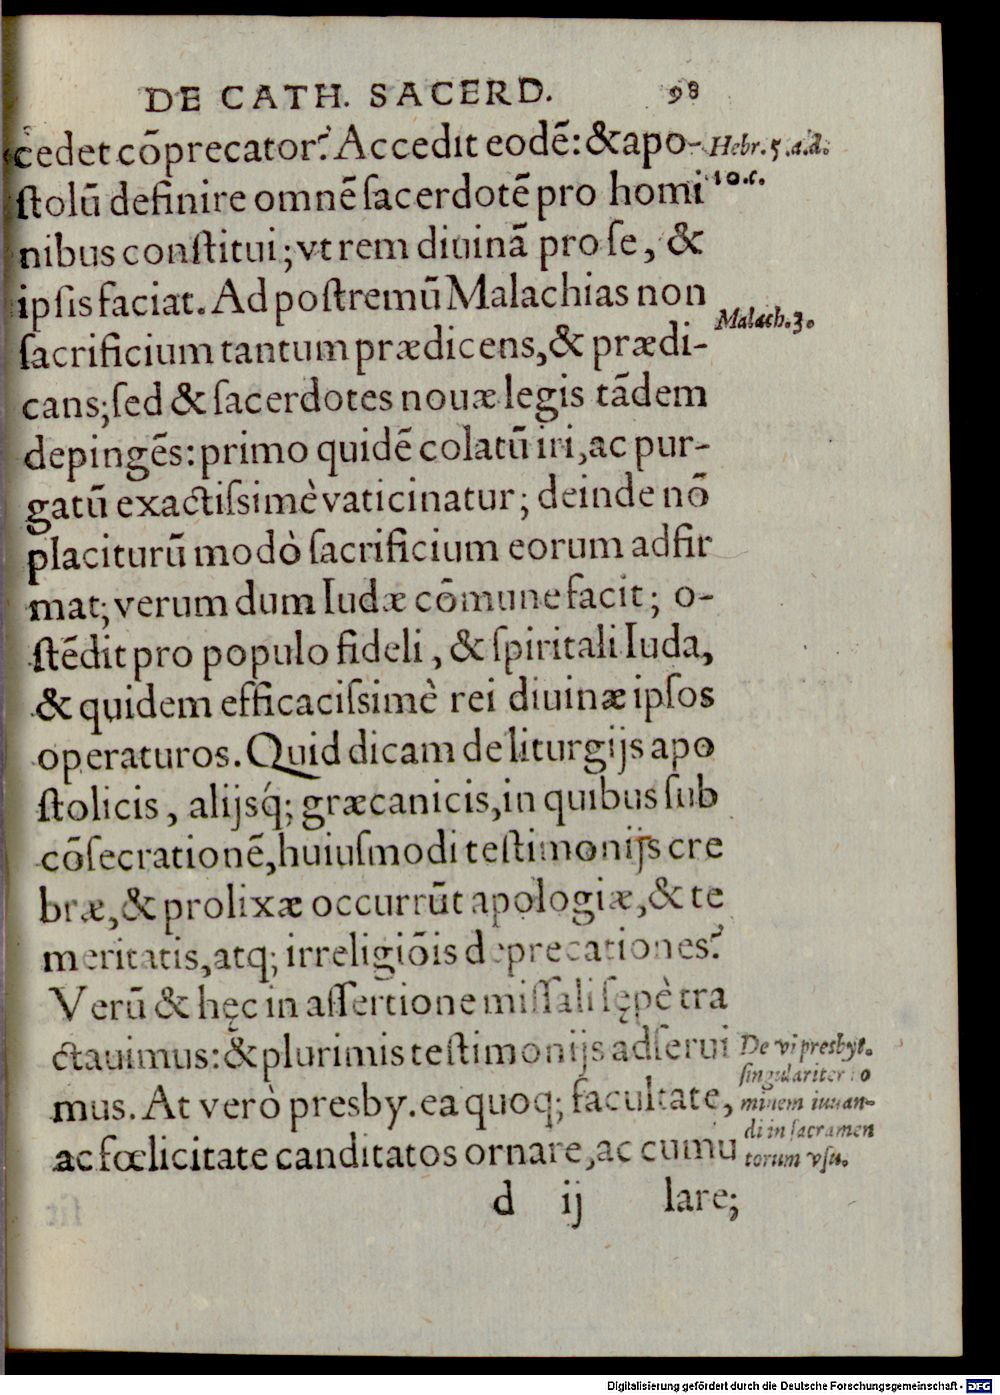 DE CATH. SACERD. 98
cedet cõprecator? Accedit eodẽ: & apo-
ſtolũ definire omnẽ ſacerdotẽ pro homi
nibus conſtitui; vt rem diuinã pro ſe, &
ipſis faciat. Ad poſtremũ Malachias non
ſacrificium tantum prædicens, & prædi-
cans; ſed & ſacerdotes nouæ legis tãdem
depingẽs: primo quidẽ colatũ iri, ac pur-
gatũ exactiſsimè vaticinatur; deinde nõ
placiturũ modò ſacrificium eorum adfir
mat; verum dum Iudæ cõmune facit; o-
ſtẽdit pro populo fideli, & ſpiritali Iuda,
& quidem efficaciſsimè rei diuinæ ipſos
operaturos. Quid dicam de liturgijs apo
ſtolicis, alijsq́; græcanicis, in quibus ſub
cõſecrationẽ, huiuſmodi teſtimonijs cre
bræ, & prolixæ occurrũt apologiæ, & te
meritatis, atq; irreligiõis deprecationes?
Verũ & hęc in aſſertione miſſali ſępè tra
ctauimus: & plurimis teſtimonijs adſerui
mus. At verò presby. ea quoq; facultate,
ac fœlicitate canditatos ornare, ac cumu
d ij lare;
Hebr. 5. a.d.
10.c.
Malach. 3.
De vi presbyt.
ſingulariter ho
minem iuuan-
di in ſacramen
torum vſu.
Digitalisierung gefördert durch die Deutsche Forschungsgemeinschaft - DFG